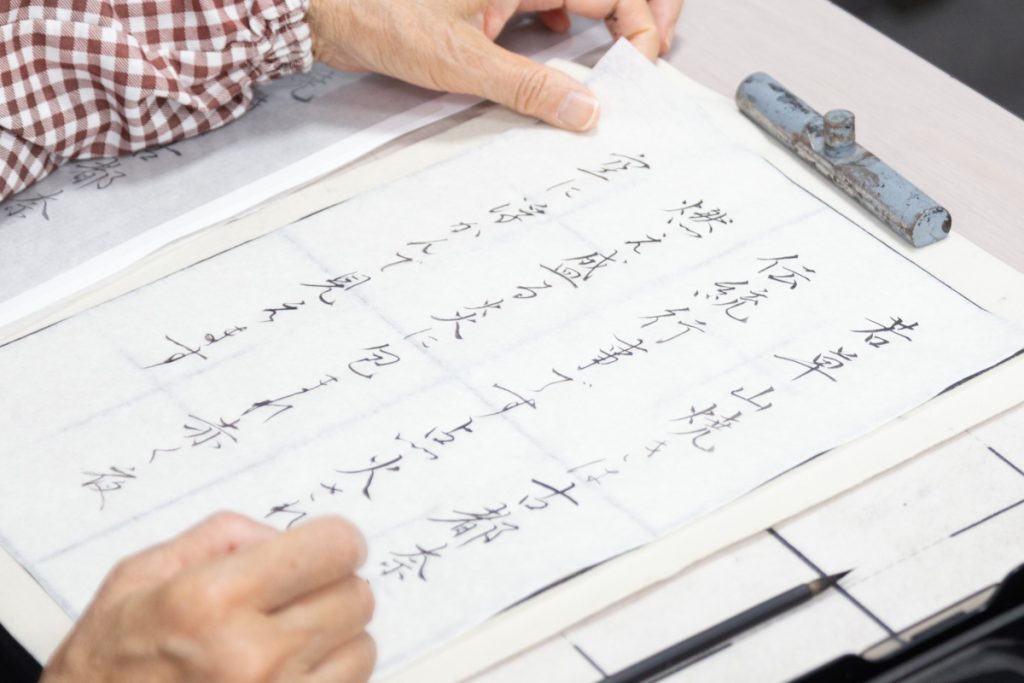 若草山焼きは古都奈
伝統行事です点火され
燃え盛る炎に包まれ赤く夜
空に浮かんで見えます
都奈